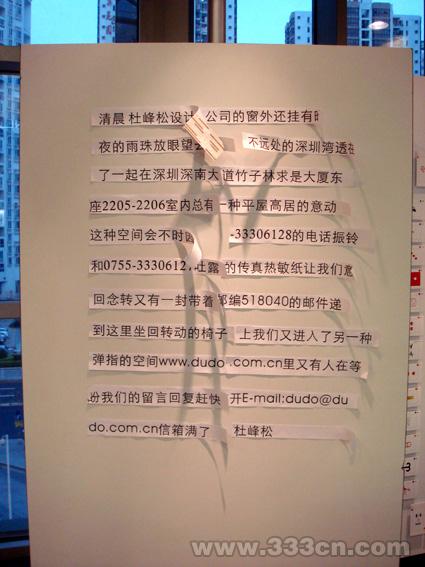 清晨 杜峰松设计 公司的窗外还挂有昨
夜的雨珠放眼望去 不远处的深圳湾透在
了一起在深圳深南大道竹子林求是大厦东
座2205-2206室内总有一种平屋高居的意动
这种空间会不时 -33306128的电话振铃
和0755-3330612 吐露 的传真热敏纸让我们意
回念转又有一封带着邮编518040的邮件递
到这里坐回转动的椅子 上我们又进入了另一种
弹指的空间www.dudo .com.cn里又有人在等
份我们的留言回复赶快 开E-mail:dudo@du
do.com.cn信箱满了 杜峰松
www.333cn.com